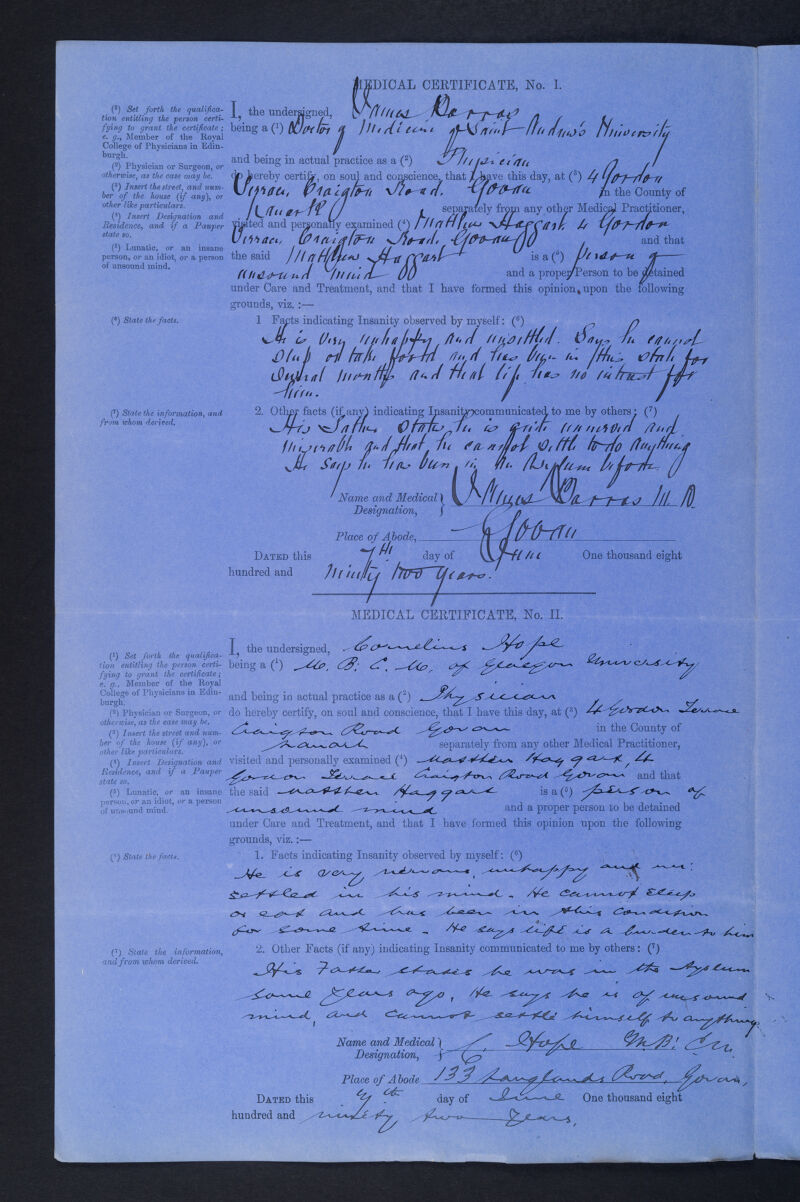 MEDICAL CERTIFICATE, No. I.
(1) Set forth the qualifica-
tion entitling the person certi-
fying to grant the certificate;
e. g., Member of the Royal
College of Physicians in Edin-
burgh.
(2) Physician or Surgeon, or
otherwise, as the case may be.
(3) Insert the street, and num-
ber of the house (if any), or
other like particulars.
(4) Insert Designation and
Residence, and if a Pauper
state so.
(5) Lunatic, or an insane
person, or an idiot, or a person
of unsound mind.
I, the undersigned, James Barras
being a (1) Doctor of Medicine of Saint Andrew's University
and being in actual practice as a (2) Physician
do hereby certify, on soul and conscience, that I have this day, at (3) 4 Gordon
Terrace, Craigton Road, Govan in the County of
Lanark separately from any other Medical Practitioner,
visited and personally examined (4) Matthew Haggart, 4 Gordon
Terrace, Craigton Road, Govan and that
the said Matthew Haggart is a (5) person of
unsound mind and a proper Person to be detained
under Care and Treatment, and that I have formed this opinion, upon the following
grounds, viz. :—
(6) State the facts.
1 Facts indicating Insanity observed by myself: (6)
He is very unhappy and unsettled. Says he cannot
sleep or take food and has been in this state for
several months and that life has no interest for
him.
(7) State the information, and
from whom derived.
2. Other facts (if any) indicating Insanity communicated to me by others: (7)
His Father states he is quite unnerved and
miserable and that he cannot settle to do anything
He says he has been in an Asylum before
Name and Medical
Designation, James Barras M. D.
Place of Abode, Govan
DATED this 7th day of June One thousand eight
hundred and Ninety two years.
MEDICAL CERTIFICATE, No. II.
(1) Set forth the qualifica-
tion entitling the person certi-
fying to grant the certificate;
e. g., Member of the Royal
College of Physicians in Edin-
burgh.
(2) Physician or Surgeon, or
otherwise, as the case may be.
(3) Insert the street and num-
ber of the house (if any), or
other like particulars.
(4) Insert Designation and
Residence, and if a Pauper
state so.
(5) Lunatic, or an insane
person, or an idiot, or a person
of unsound mind.
I, the undersigned, Cornelius Hope
being a (1) M. B. C. M. of Glasgow University
and being in actual practice as a (2) Physician
do hereby certify, on soul and conscience, that I have this day, at (3) 4 Gordon Terrace
Craigton Road Govan in the County of
Lanark separately from any other Medical Practitioner,
visited and personally examined (4) Matthew Haggart, 4
Gordon Terrace Craigton Road Govan and that
the said Matthew Haggart is a (5) person of
unsound mind and a proper person to be detained
under Care and Treatment, and that I have formed this opinion upon the following
grounds, viz. :—
(6) State the facts.
1. Facts indicating Insanity observed by myself: (6)
He is very nervous, unhappy and un:
settled in his mind. He cannot sleep
or eat and has been in this condition
for some time. He says life is a burden to him
(7) State the information,
and from whom derived.
2. Other Facts (if any) indicating Insanity communicated to me by others: (7)
His Father states he was in the Asylum
some years ago, He says he is of unsound
mind, and cannot settle himself to anything.
Name and Medical
Designation, C Hope M.B. C.M.
Place of Abode 133 Langlands Road, Govan,
DATED this 7th day of June One thousand eight
hundred and ninety two years,